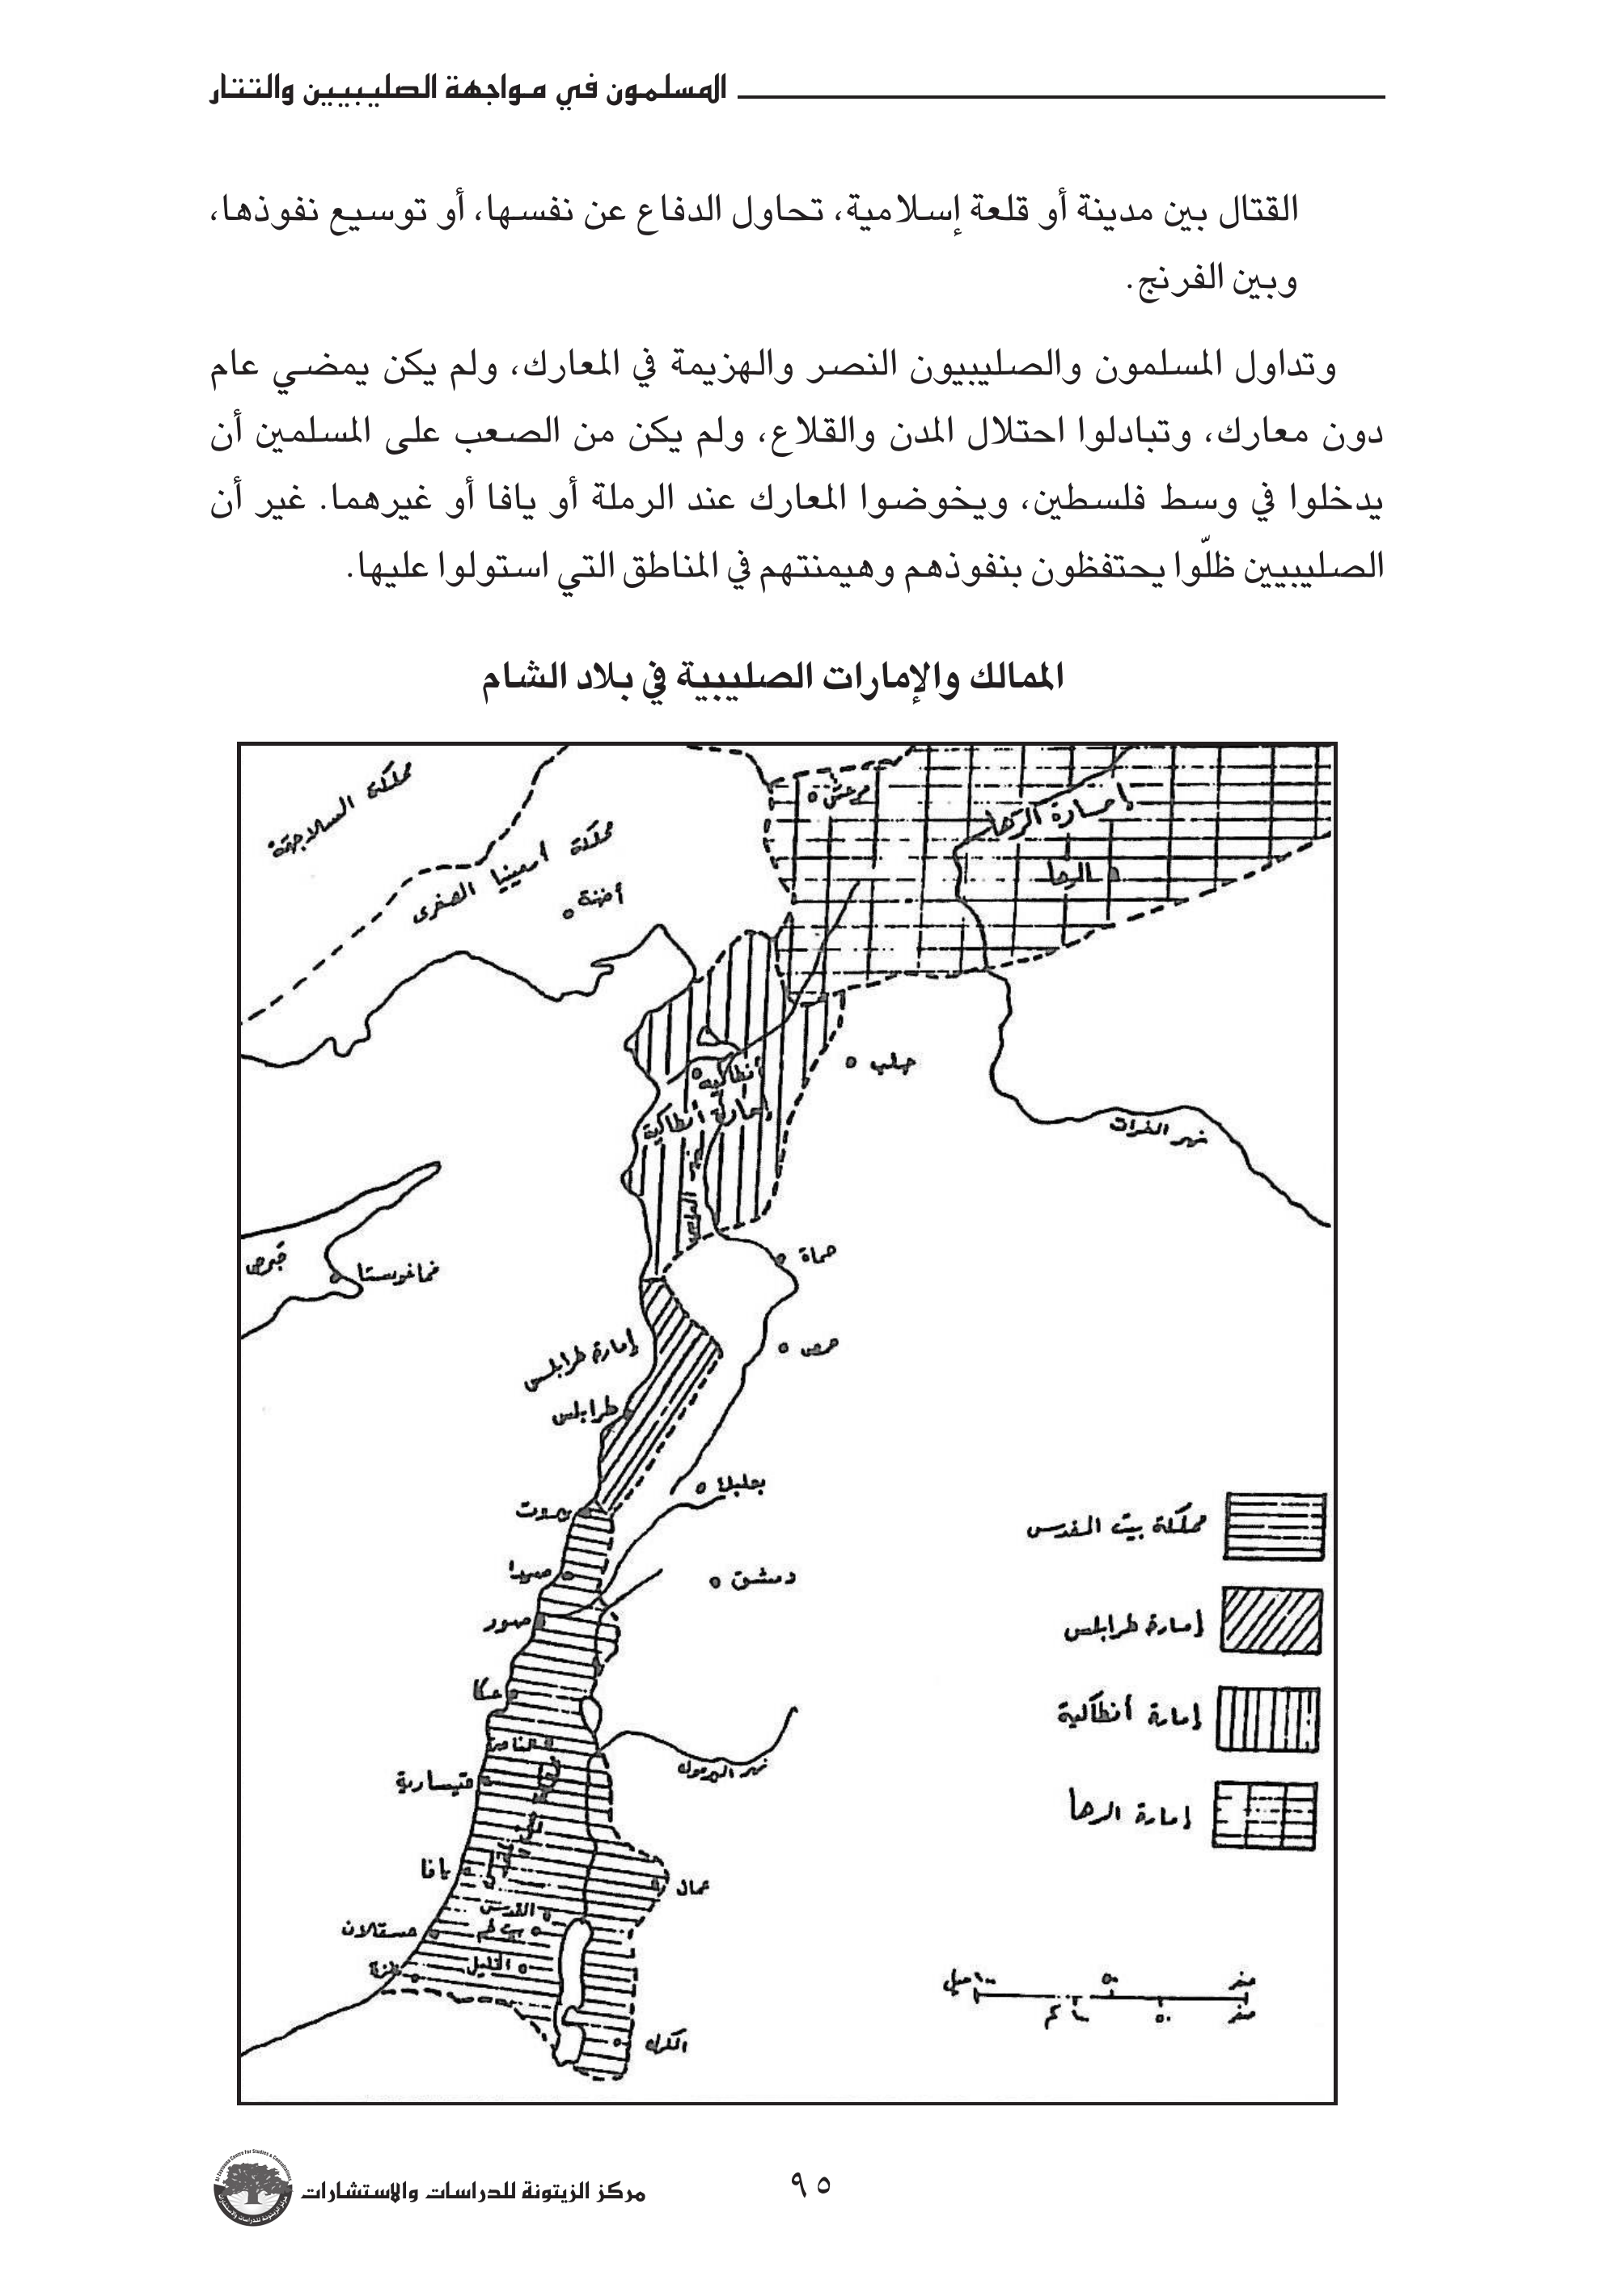 المسلمون في مواجهة الصليبيين والتتار
القتال بين مدينة أو قلعة إسلامية، تحاول الدفاع عن نفسها، أو توسيع نفوذها،
وبين الفرنج.
وتداول المسلمون والصليبيون النصر والهزيمة في المعارك، ولم يكن يمضي عام
دون معارك، وتبادلوا احتلال المدن والقلاع، ولم يكن من الصعب على المسلمين أن
يدخلوا في وسط فلسطين، ويخوضوا المعارك عند الرملة أو يافا أو غيرهما. غير أن
الصليبيين ظلّوا يحتفظون بنفوذهم وهيمنتهم في المناطق التي استولوا عليها.
الممالك والإمارات الصليبية في بلاد الشام
مملكة السلاجقة
مملكة أرمينيا الصغرى
أضنة
مرعش
إمارة الرها
الرها
أنطاكية
إمارة أنطاكية
حلب
نهر الفرات
قبرص
فماغوستا
حماة
حمص
إمارة طرابلس
طرابلس
بعلبك
بيروت
صيدا
دمشق
صور
عكا
الناصرة
نهر اليرموك
قيسارية
يافا
عمان
القدس
بيت لحم
عسقلان
الخليل
غزة
الكرك
مملكة بيت المقدس
إمارة طرابلس
إمارة أنطاكية
إمارة الرها
١٠٠ ميل ٥٠ صفر
١٠٠ كم ٥٠ صفر
٩٥
مركز الزيتونة للدراسات والاستشارات
Al-Zaytouna Centre For Studies & Consultations
مركز الزيتونة للدراسات والاستشارات